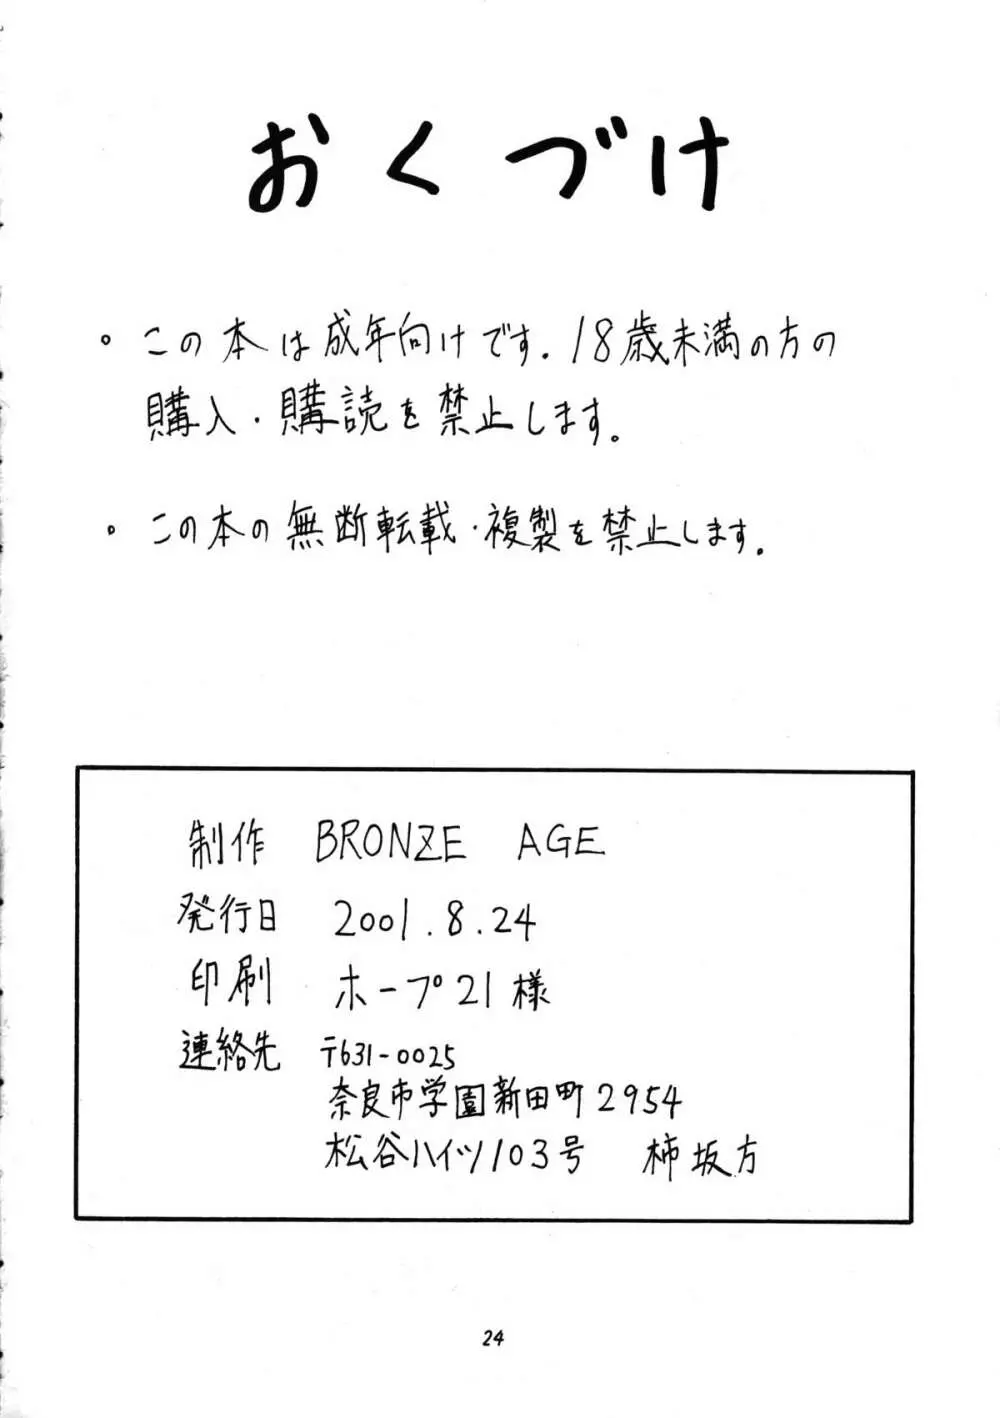 おくづけ
。この本は成年向けです.18歳未満の方の
購入・購読を禁止します。
。この本の無断転載・複製を禁止します。
制作 BRONZE AGE
発行日 2001.8.24
印刷 ホープ21様
連絡先 〒631-0025
奈良市学園新田町2954
松谷ハイツ103号 柿坂方
24